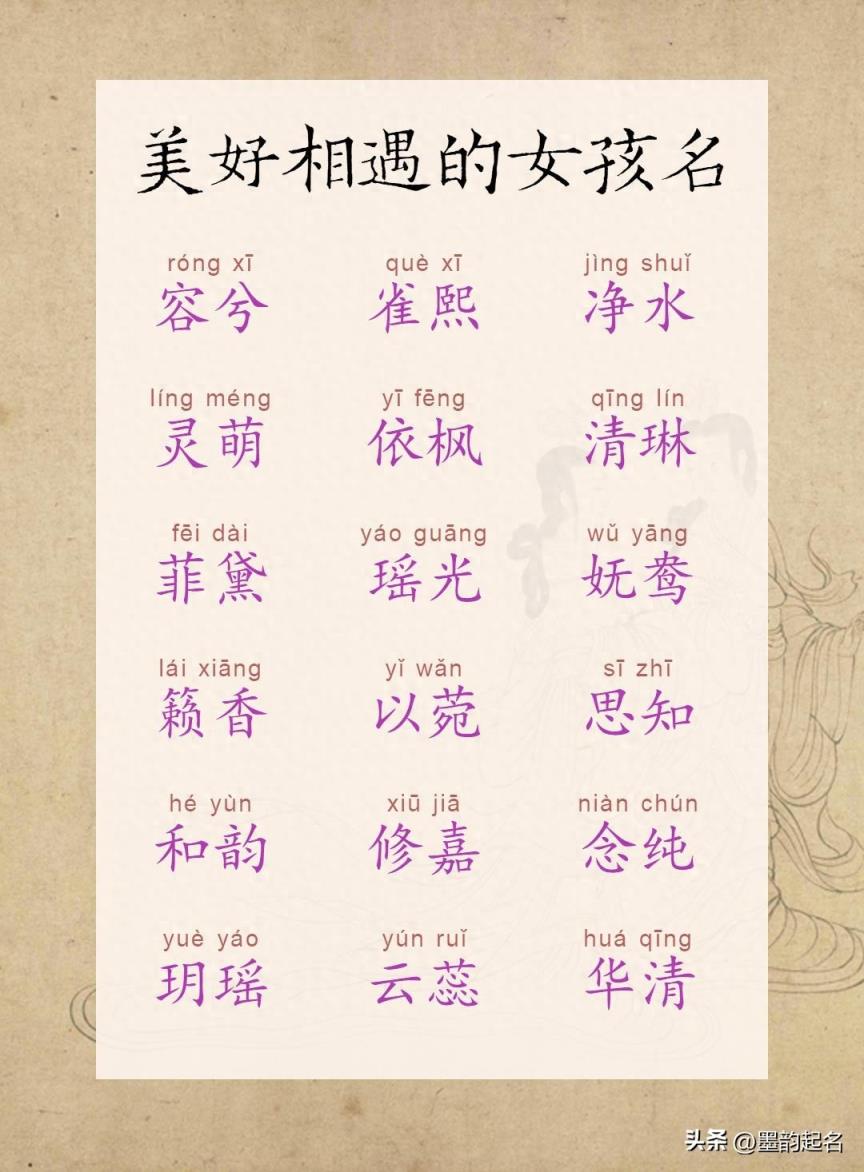 美好相遇的女孩名
róng xī què xī jìng shuǐ
容兮 雀熙 净水
líng méng yī fēng qīng lín
灵萌 依枫 清琳
fēi dài yáo guāng wǔ yāng
菲黛 瑶光 妩鸯
lái xiāng yǐ wǎn sī zhī
籁香 以菀 思知
hé yùn xiū jiā niàn chún
和韵 修嘉 念纯
yuè yáo yún ruǐ huá qīng
玥瑶 云蕊 华清
头条 @墨韵起名